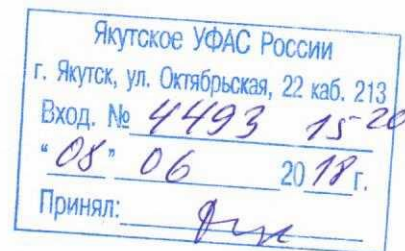 Якутское УФАС России
г. Якутск, ул. Октябрьская, 22 каб. 213
Вход. № 4493 15-20
"08" 06 2018 г.
Принял: